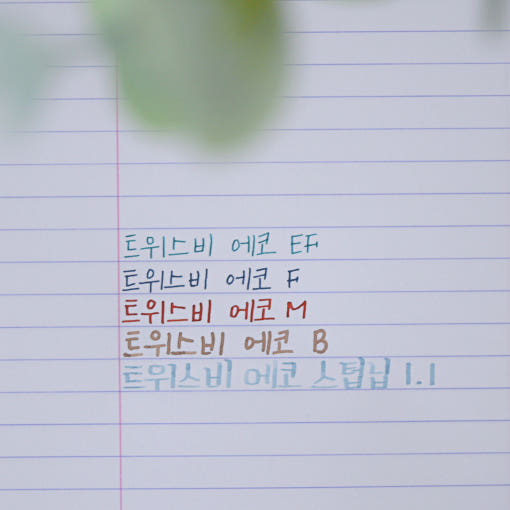 트위스비 에코 EF
트위스비 에코 F
트위스비 에코 M
트위스비 에코 B
트위스비 에코 스텁닙 1.1